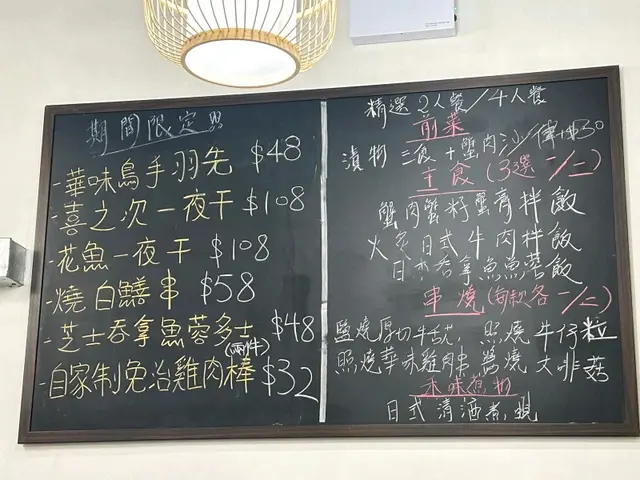 期間限定!!!
-華味鳥手羽先 $48
-喜之次一夜干 $108
-花魚一夜干 $108
-燒白鱔串 $58
-芝士吞拿魚蓉多士 $48
(兩件)
-自家制免治雞肉棒 $32
精選2人餐/4人餐
前菜
漬物三食+蟹肉沙律+$30
主食(3選一/二)
蟹肉蟹籽蟹膏拌飯
火炙日式牛肉拌飯
日本吞拿魚魚蓉飯
串燒(每款各一/二)
鹽燒厚切牛舌, 照燒牛仔粒
照燒華味雞肉串, 醬燒大啡菇
日式清酒煮蜆